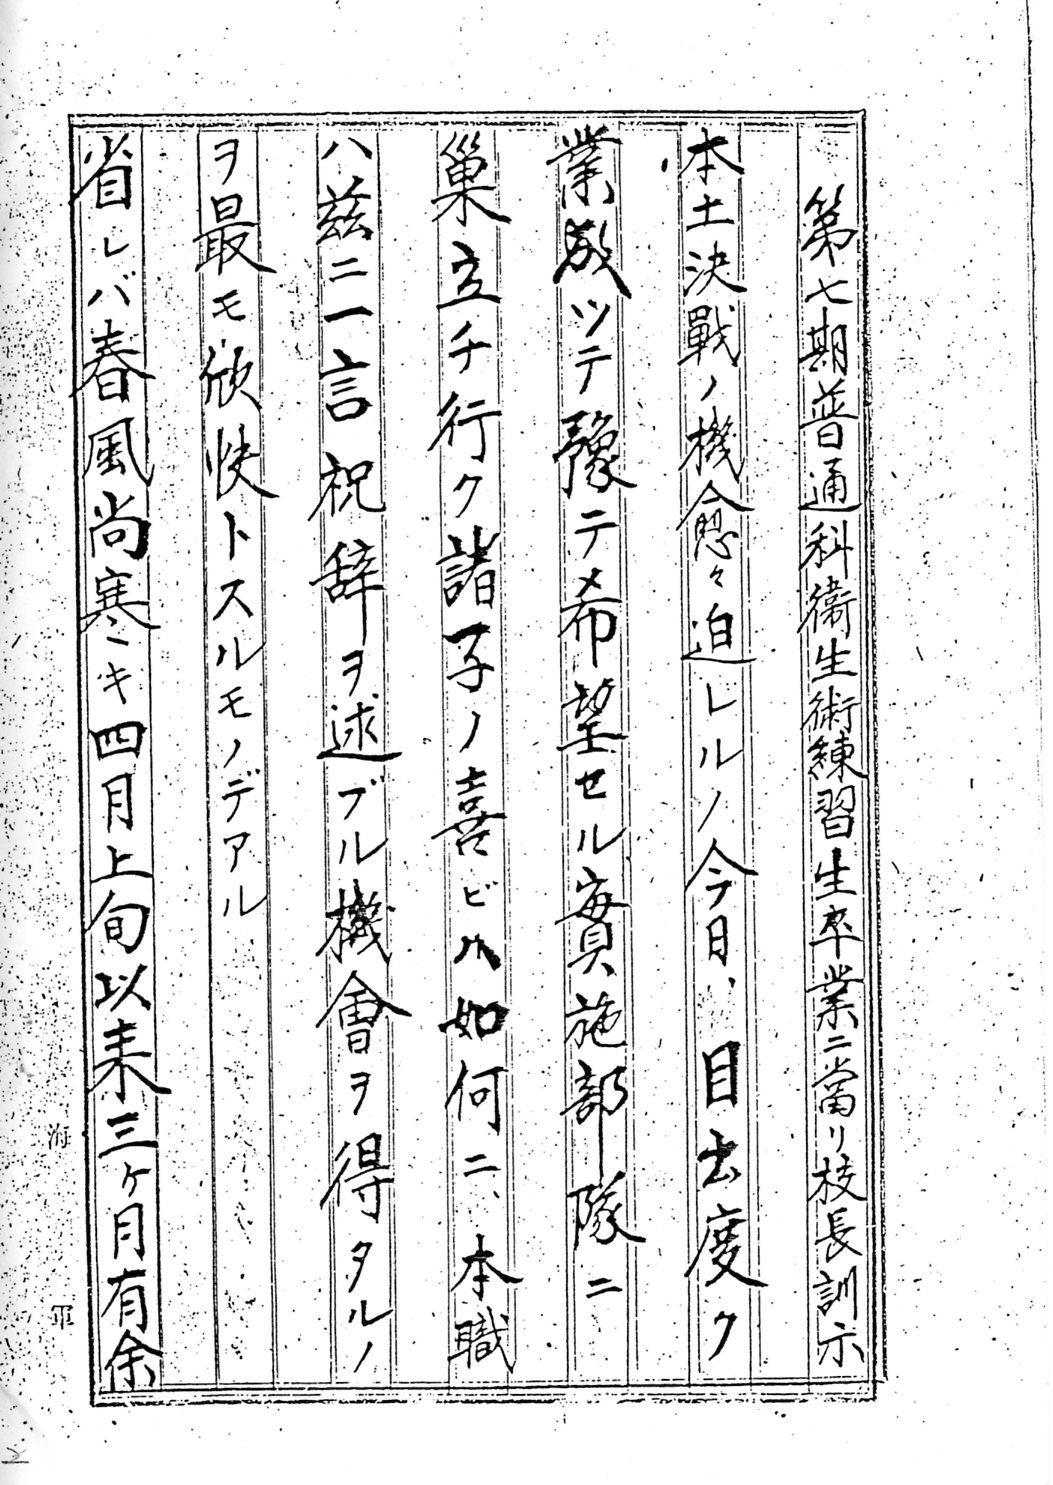 第七期普通科衞生術練習生卒業ニ當リ校長訓示
本土決戰ノ機愈々迫レルノ今日、目出度ク
業成ツテ豫テ希望セル實施部隊ニ
巢立チ行ク諸子ノ喜ビハ如何ニ、本職
ハ茲ニ一言祝辞ヲ述ブル機會ヲ得タルノ
ヲ最モ欣快トスルモノデアル
省レバ春風尚寒キ四月上旬以来三ヶ月有余
海軍